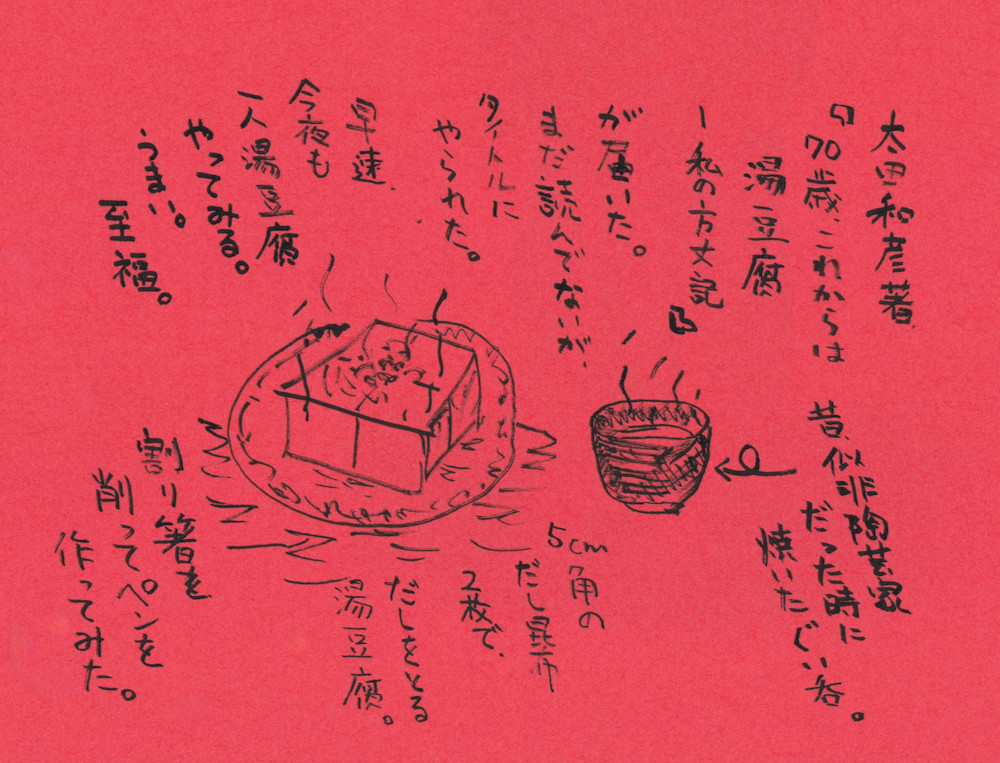 太田和彦著
『70歳、これからは
湯豆腐
ー私の方丈記』
が届いた。
まだ読んでないが、
タイトルに
やられた。
早速、
今夜も
一人湯豆腐
やってみる。
うまい。
至福。
昔、似非陶芸家
だった時に
焼いたぐい呑。
5cm角の
だし昆布
2枚で、
だしをとる
湯豆腐。
割り箸を
削ってペンを
作ってみた。